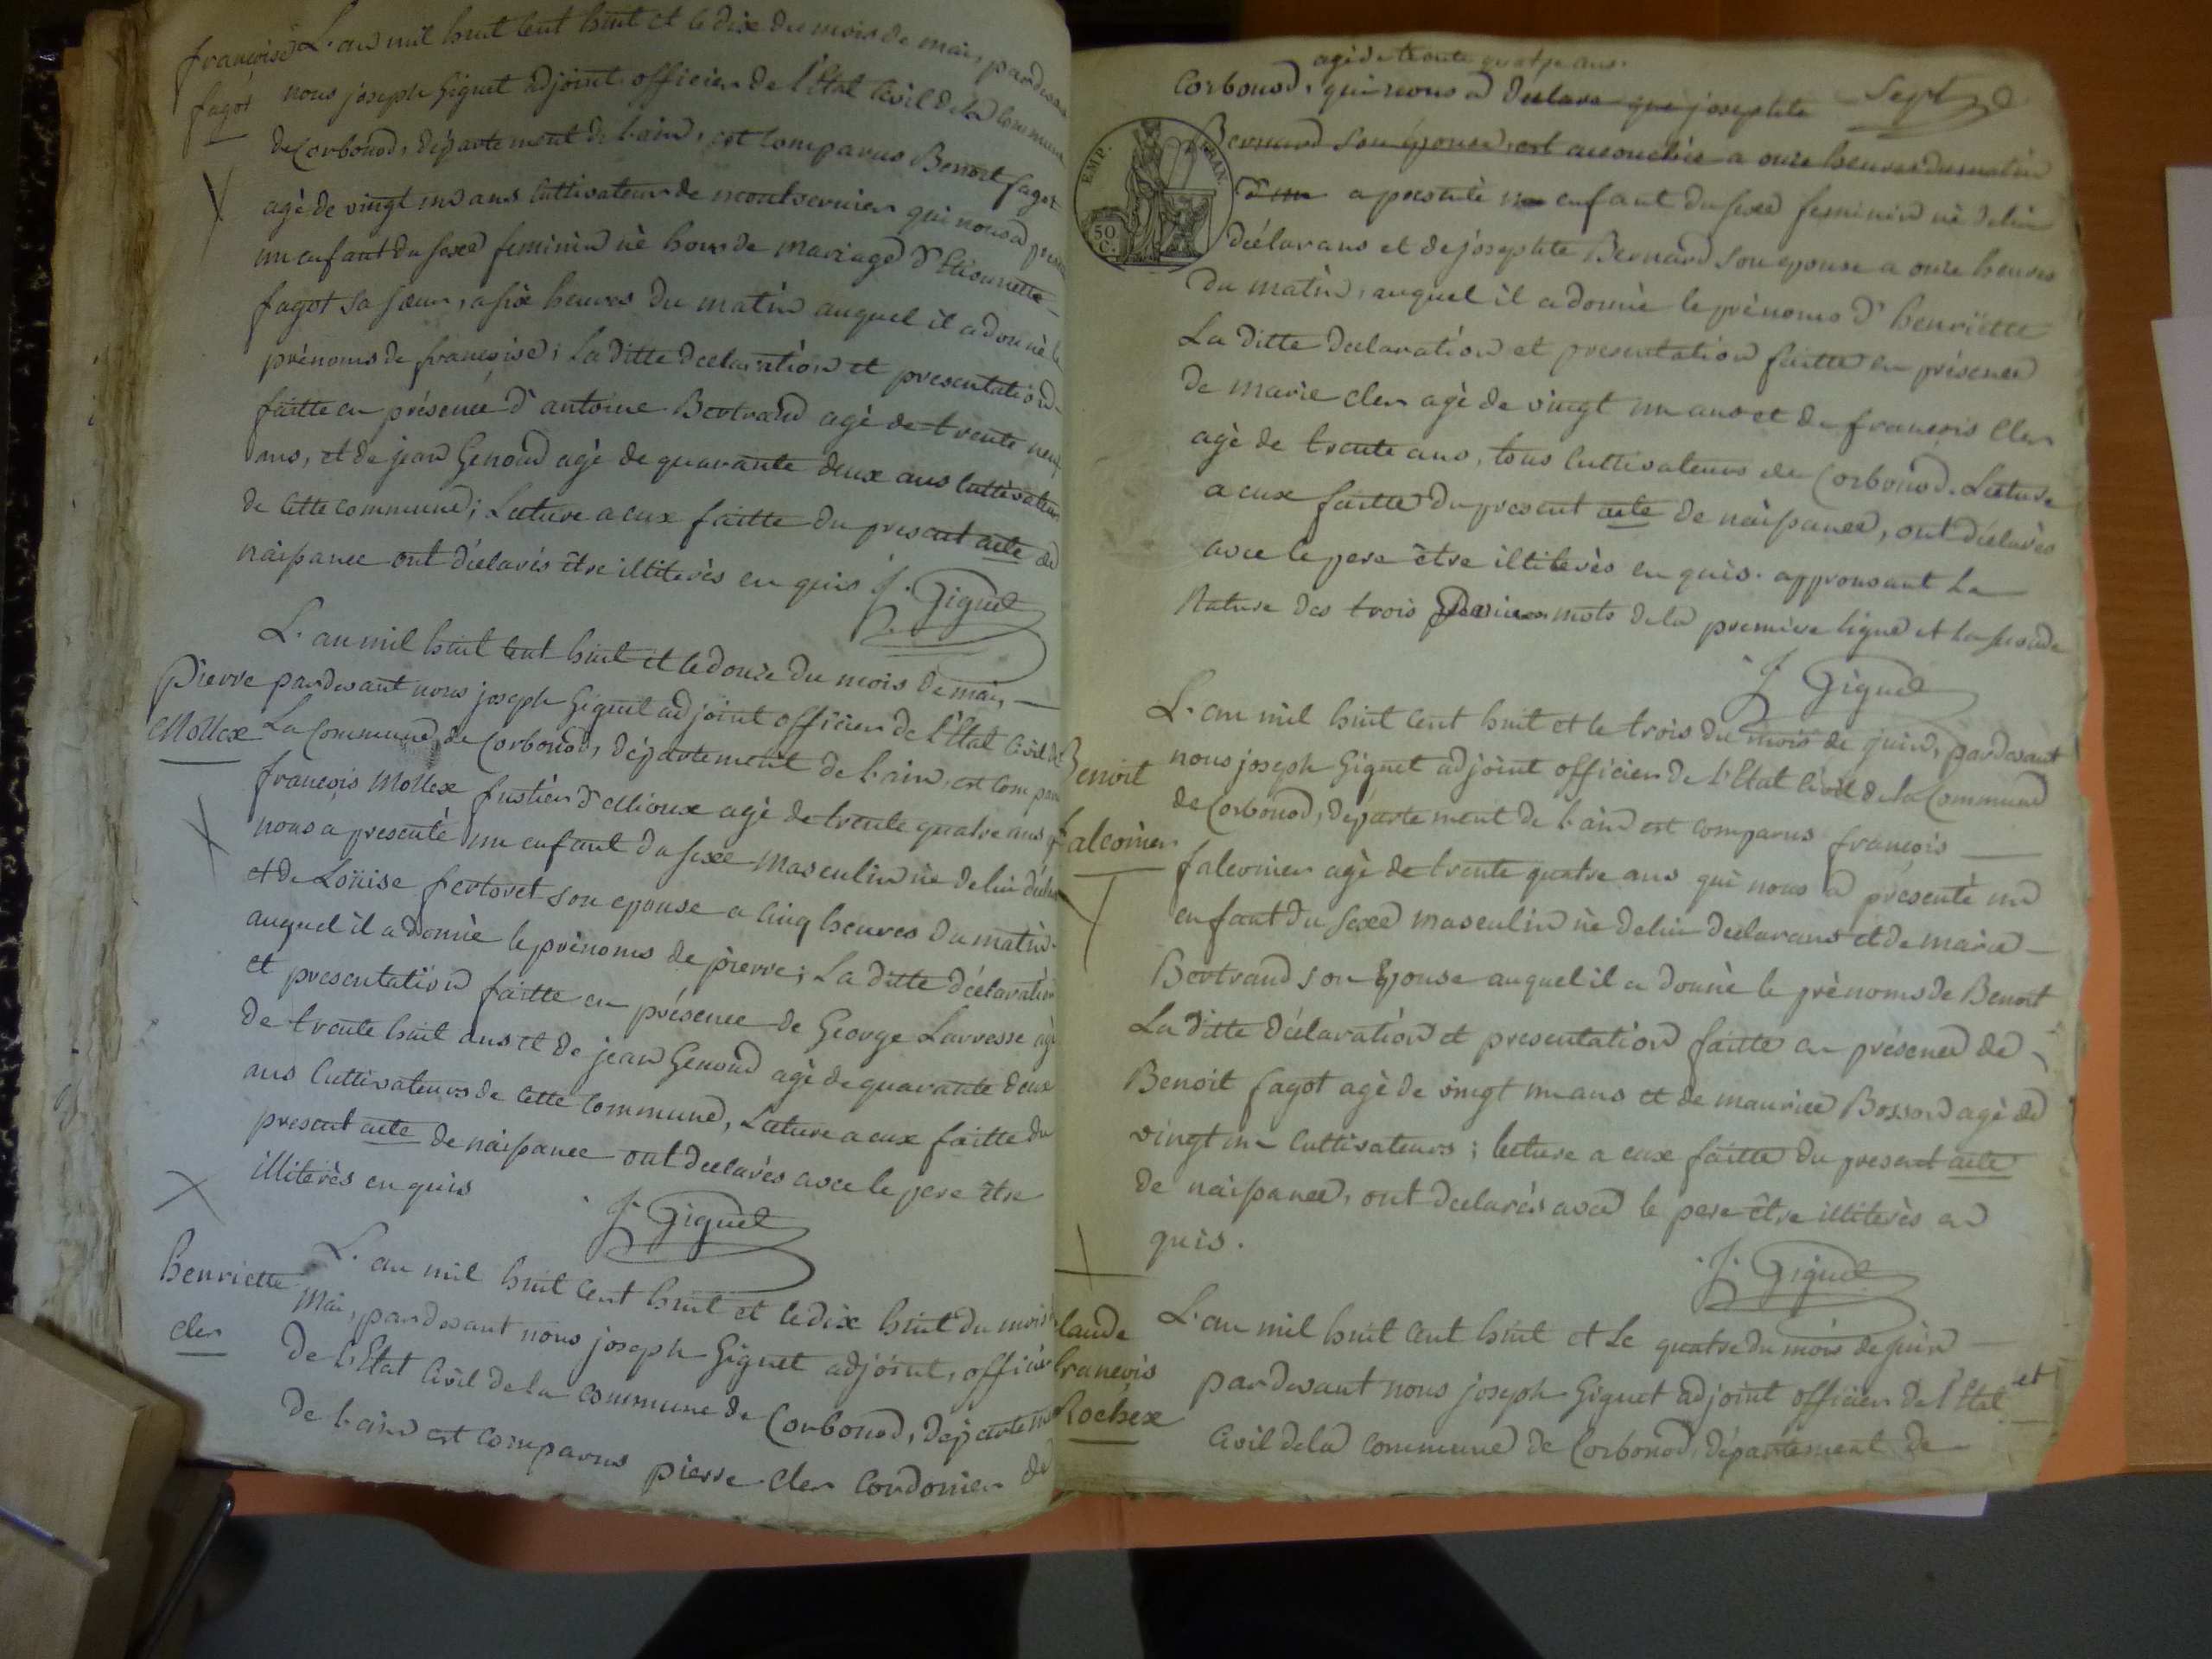 françoise
fagot
L'an mil huit cent huit et le dix du mois de mai, pardevant
nous joseph Giguet adjoint officier de l'Etat civil de la commune
de Corbonod, département de l'ain, est comparus Benoit fagot
agè de vingt un ans Cultivateur de montvernier qui nous a
un enfant du sexe feminin nè hors de mariage d'
fagot sa sœur, a six heures du matin auquel il a donnè le
prènoms de françoise; La ditte declaration et presentation
faitte en présence d'antoine Bertrand agè de trente neuf
ans, et de jean Genoud agè de quarante deux ans Cultivateurs
de cette commune; Lecture a eux faitte du present acte de
naissance ont déclarés être illiterès en quis J. Giguet
pierre
Mollex
L'an mil huit cent huit et le douze du mois de mai,
pardevant nous joseph Giguet adjoint officier de l'Etat civil de
La Commune de Corbonod, département de l'ain, est compar
françois Mollex fustier d' agè de trente quatre ans
nous a presentè un enfant du sexe masculin nè de lui décla
et de Loüise fertoret son epouse a cinq heures du matin
auquel il a donnè le prènoms de pierre; La ditte déclaration
et presentation faitte en présence de George Larresse agè
de trente huit ans et de jean Genoud agè de quarante deux
ans Cultivateurs de cette Commune, Lecture a eux faitte du
present acte de naissance ont declarès avec le pere être
illiterès en quis
J. Giguet
henriette
cler
L'an mil huit cent huit et le dix huit du mois
mai, pardevant nous joseph Giguet adjoint, officier
de l'Etat civil de la commune de Corbonod, département
de l'ain est comparus pierre Cler Cordonier de
agè de trente quatre ans.
Corbonod, qui nous a declare que josephte
Sept
Bernard son épouse est accouchée a onze heures du matin
d'un a presentè un enfant du sexe feminin nè de lui
déclarans et de josephte Bernard son epouse a onze heures
du matin, auquel il a donnè le prènoms d'henriette
La ditte declaration et presentation faitte en présence
de marie cler agè de vingt un ans et de françois Cler
agè de trente ans, tous Cultivateurs de Corbonod. Lecture
a eux faitte du present acte de naissance, ont déclarès
avec le pere être illiterès en quis. approuvant La
Rature des trois Derniers mots de la premiere ligne et la seconde
J. Giguet
EMP. FRAN.
50 C.
Benoit
falconier
L'an mil huit cent huit et le trois du mois de juin, pardevant
nous joseph Giguet adjoint officier de l'Etat civil de la Commune
de Corbonod, département de l'ain est comparus françois
falconier agè de trente quatre ans qui nous a présentè un
enfant du sexe masculin nè de lui declarans et de marie
Bertrand son Epouse auquel il a donnè le prènoms de Benoit
La ditte déclaration et presentation faitte en présence de
Benoit fagot agè de vingt un ans et de maurice Bosson agè de
vingt un Cultivateurs; lecture a eux faitte du present acte
de naissance, ont declarés avec le pere être illiterès en
quis.
J. Giguet
laude
françois
Rochex
L'an mil huit cent huit et Le quatre du mois de juin
pardevant nous joseph Giguet adjoint officier de l'Etat et
civil de la commune de Corbonod, département de